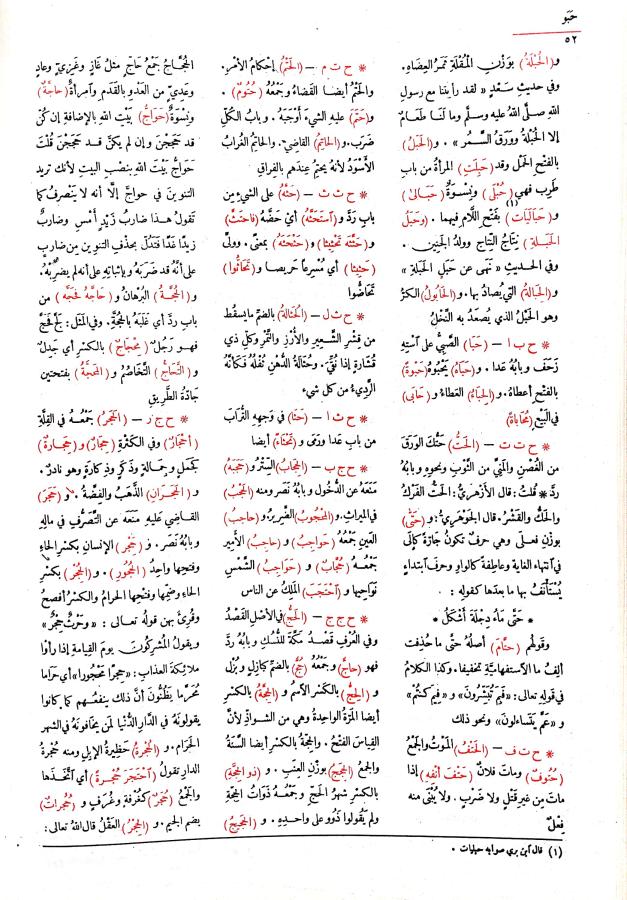 حَبَو
٥٢
و(الحُبْلَةُ) بوَزْنِ المُقْلَةِ ثَمَرُ العِضَاهِ.
وفي حديثِ سَعْدٍ « لقد رأيتنا مع رسولِ
اللهِ صلَّى اللهُ عليه وسلَّم وما لنا طَعَامٌ
إلا الحُبْلَةُ ووَرَقُ السَّمُر ». و(الحَبَلُ)
بالفتح الحَمْل وقد (حَبِلَتِ) المرأةُ من باب
طَرِبَ فهي (حُبْلَى) ونِسْوَةٌ (حَبَالَى)
و(حَبَالَيَات)(١) بفتح اللام فيهما. و(حَبَلُ
الحَبَلَةِ) نِتَاجُ النِّتَاجِ ووَلَدُ الجَنِين.
وفي الحديثِ « نَهَى عن حَبَلِ الحَبَلَةِ »
و(الحِبَالَةُ) التي يُصادُ بها. و(الحَابُولُ) الكَرُّ
وهو الحَبْلُ الذي يُصعَدُ به النَّخْلُ
* ح ب ا – (حَبَا) الصَّبِيُّ على آسْتِهِ
زَحَفَ وبابُهُ عَدَا. و(حَبَاهُ) يَحْبُوهُ (حَبْوَةً)
بالفتح أعطاهُ. و(الحِبَاءُ) العَطاءُ و(حَابَى)
في البَيْعِ (مُحَاباةً)
* ح ت ت – (الحَتُّ) حَتُّكَ الوَرَقَ
من الغُصْنِ والمَنِيَّ من الثَّوْبِ ونحوِهِ وبابُهُ
رَدَّ * قلتُ: قال الأزهريُّ: الحَتُّ الفَرْكُ
والحَكُّ والقَشْرُ. قال الجَوْهَرِيُّ: و(حَتَّى)
بوزن فَعْلَى وهي حرفٌ تكونُ جَارَّةً كإلى
في انتهاءِ الغايةِ وعاطفةً كالواوِ وحرفَ ابتداءٍ
يُسْتَأْنَفُ بها ما بعدَها كقوله:
* حتَّى مَاءُ دِجْلَةَ أَشْكَلُ *
وقولهُم (حَتَّامَ) أصلُهُ حتَّى ما حُذِفت
ألِفُ ما الاستفهاميَّةِ تخفيفا. وكذا الكلامُ
في قوله تعالى: «فبِمَ تُبَشِّرُونَ» و «فِيمَ كُنْتُمْ»
و «عَمَّ يَتَسَاءَلُونَ» ونحو ذلك
* ح ت ف – (الحَتْفُ) المَوْتُ والجَمْعُ
(حُتُوفٌ) وماتَ فلانٌ (حَتْفَ أنْفِهِ) إذا
مات مِن غيرِ قَتْلٍ ولا ضَرْبٍ. ولا يُبْنَى منه
فِعْلٌ
* ح ت م – (الحَتْمُ) إحْكامُ الأَمْرِ.
والحَتْمُ أيضا القَضاءُ وجَمْعُهُ (حُتُومٌ).
و(حَتَمَ) عليه الشيءَ أوْجَبَهُ. وبابُ الكُلِّ
ضَرَب. و(الحاتِمُ) القاضي. والحاتِمُ الغُرابُ
الأسْوَدُ لأنه يحتِمُ عِنْدهم بالفِراقِ
* ح ث ث – (حَثَّهُ) على الشيءِ من
بابِ رَدَّ و(آسْتَحَثَّهُ) أي حَضَّهُ (فاحتَثَّ)
و(حَثَّثَهُ تَحْثِيثًا) و(حَثْحَثَهُ) بمعنًى. ووَلَّى
(حَثِيثا) أي مُسْرِعًا حَرِيصًا و(تَحَاثُّوا)
تَحَاضُّوا
* ح ث ل – (الحُثَالَةُ) بالضمِّ ما يسقُط
من قِشْرِ الشَّعِيرِ والأَرُزِّ والتَّمْرِ وكلِّ ذي
قُشَارَةٍ إذا نُقِّيَ. وحُثَالَةُ الدُّهْنِ ثُفْلُهُ فكأنَّهُ
الرَّدِيءُ من كل شيء
* ح ث ا – (حَثَا) في وَجهِهِ التُّرابَ
من باب عَدَا ورَمَى و(تَحْثَاءً) أيضا
* ح ج ب – (الحِجَابُ) السِّتْرُ و(حَجَبَهُ)
مَنَعَهُ عن الدُّخولِ وبابُهُ نَصَر ومنه (الحَجْبُ)
في الميراثِ. و(المَحْجُوبُ) الضَّرِيرُ و(حاجِبُ)
العَيْنِ جَمْعُهُ (حَوَاجِبُ) و(حاجِبُ) الأَمِيرِ
جَمْعُهُ (حُجَّابٌ) و(حَوَاجِبُ) الشَّمْسِ
نَوَاحِيها و(آحْتَجَبَ) المَلِكُ عن الناسِ
* ح ج ج – (الحَجُّ) في الأصْلِ القَصْدُ
وفي العُرْفِ قَصْدُ مَكَّةَ للنُّسُكِ وبابُهُ رَدَّ
فهو (حَاجٌّ) وجَمْعُهُ (حُجٌّ) بالضم كبازِلٍ وبُزْلٍ
و(الحِجُّ) بالكَسْرِ الآسْمُ و(الحِجَّةُ) بالكَسْرِ
أيضا المَرَّةُ الواحِدةُ وهي من الشَّواذِّ لأنَّ
القِياسَ الفَتْحُ. والحِجَّةُ بالكسْرِ أيضا السَّنَةُ
والجمع (الحِجَجُ) بوزْنِ العِنَبِ. و(ذو الحِجَّةِ)
بالكسرِ شَهْرُ الحَجِّ وجَمْعُهُ ذَوَاتُ الحِجَّةِ
ولم يَقُولوا ذَوُو على واحِدِهِ. و(الحَجِيجُ)
الحُجَّاجُ جَمْعُ حَاجٍّ مثلُ غَازٍ وغَزِيٍّ وعَادٍ
وعَدِيٍّ من العَدْوِ بالقَدَمِ وامرأةٌ (حاجَّةٌ)
ونِسْوَةٌ (حَوَاجُّ) بَيْتِ اللهِ بالإضافةِ إن كُنَّ
قد حَجَجْنَ وإن لم يكنَّ قد حَجَجْنَ قُلْتَ
حَوَاجُّ بَيْتَ اللهِ بنَصْبِ البيتِ لأنك تريد
التنوينَ في حواجّ إلّا أنه لا يَنْصرفُ كما
تَقُولُ هذا ضارِبُ زَيْدٍ أَمْسِ وضارِبٌ
زيدًا غدًا فتَدُلُّ بحذفِ التنوينِ من ضاربٍ
على أنَّه قد ضَرَبَهُ وبإثباتِهِ على أنه لم يضرِبْهُ.
و(الحُجَّةُ) البُرْهانُ و(حَاجَّهُ فَحَجَّهُ) من
باب رَدَّ أي غَلَبَهُ بالحُجَّةِ. وفي المَثَلِ: لَجَّ فَحَجَّ
فهو رَجُلٌ (مِحْجَاجٌ) بالكسرِ أي جَدِلٌ
و(التَّحَاجُّ) التَّخَاصُمُ و(المَحَجَّةُ) بفتحتين
جَادَّةُ الطَّرِيقِ
* ح ج ر – (الحَجَرُ) جَمْعُهُ في القِلَّةِ
(أحْجَارٌ) وفي الكَثْرَةِ (حِجَارٌ) و(حِجَارَةٌ)
كجَمَلٍ وجِمَالةٍ وذَكَرٍ وذِكَارةٍ وهو نادرٌ.
و(الحَجَرانِ) الذَّهَبُ والفِضَّةُ. و(حَجَرَ)
القاضي عليهِ مَنَعَهُ عن التَّصَرُّفِ في مالِهِ
وبابُهُ نَصَر. و(حَجْر) الإنسانِ بكَسْرِ الحاءِ
وفتحِها واحِدُ (الحُجُورِ). و(الحِجْرُ) بكسرِ
الحاءِ وضمِّها وفتحِها الحرامُ والكسْرُ أفصحُ
وقُرِئَ بهنَّ قولُه تعالى: «وحَرْثٌ حِجْرٌ»
ويقولُ المُشْرِكُونَ يومَ القيامةِ إذا رأوْا
ملائِكةَ العذابِ: «حِجْرًا مَحْجُورًا» أي حَرامًا
مُحَرَّمًا يَظُنُّونَ أنَّ ذلك ينفعُهم كما كانوا
يقولونَهُ في الدَّارِ الدُّنْيا لمن يَخافُونَهُ في الشهرِ
الحَرامِ. و(الحُجْرَةُ) حَظِيرةُ الإبلِ ومنه حُجْرةُ
الدارِ تقولُ (آحْتَجَرَ حُجْرةً) أي آتَّخَذَها
والجَمْعُ (حُجَرٌ) كغُرْفةٍ وغُرَفٍ و(حُجُراتٌ)
بضم الجيم. و(الحِجْرُ) العَقْلُ قال اللهُ تعالى:
(١) قال آبن بري صوابه حبليات.